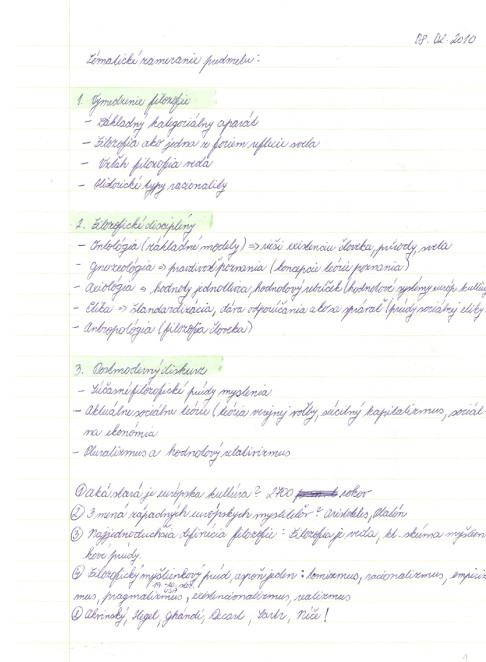 08. 02. 2010
Tématické zameranie predmetu:
1. Vymedzenie filozofie
- Základný kategoriálny aparát
- Filozofia ako jedna z foriem reflexie sveta
- Vzťah filozofia veda
- Historické typy racionality
2. Filozofické disciplíny
- Ontológia (základné modely) => rieši existenciu človeka, prírody, sveta
- Gnozeológia => pravdivosť poznania (koncepcie teórie poznania)
- Axiológia => hodnoty jednotlivca, hodnotový rebríček (hodnotové systémy európ. kultúry
- Etika => štandardizácia, dáva odporúčania ako sa správať (prúdy sociálnej etiky
- Antropológia (filozofia človeka)
3. Postmoderný diskurz
- Súčasné filozofické prúdy myslenia
- Aktuálne sociálne teórie (teória verejnej voľby, sociálny kapitalizmus, sociál
na ekonómia
- Pluralizmus a hodnotový relativizmus
① Aká stará je európska kultúra? 2700 rokov
② 3 mená západných európskych mysliteľov? Aristoteles, Platón
③ Najjednoduchšia definícia filozofie: Filozofia je veda, kt. skúma myšlien
kové prúdy.
④ Filozofický myšlienkový prúd, aspoň jeden: tomizmus, racionalizmus, empiriz
mus, pragmatizmus, existencionalizmus, realizmus
USA
Akvinský, Hegel, Ghándí, Decart, Sartr, Níče!
1